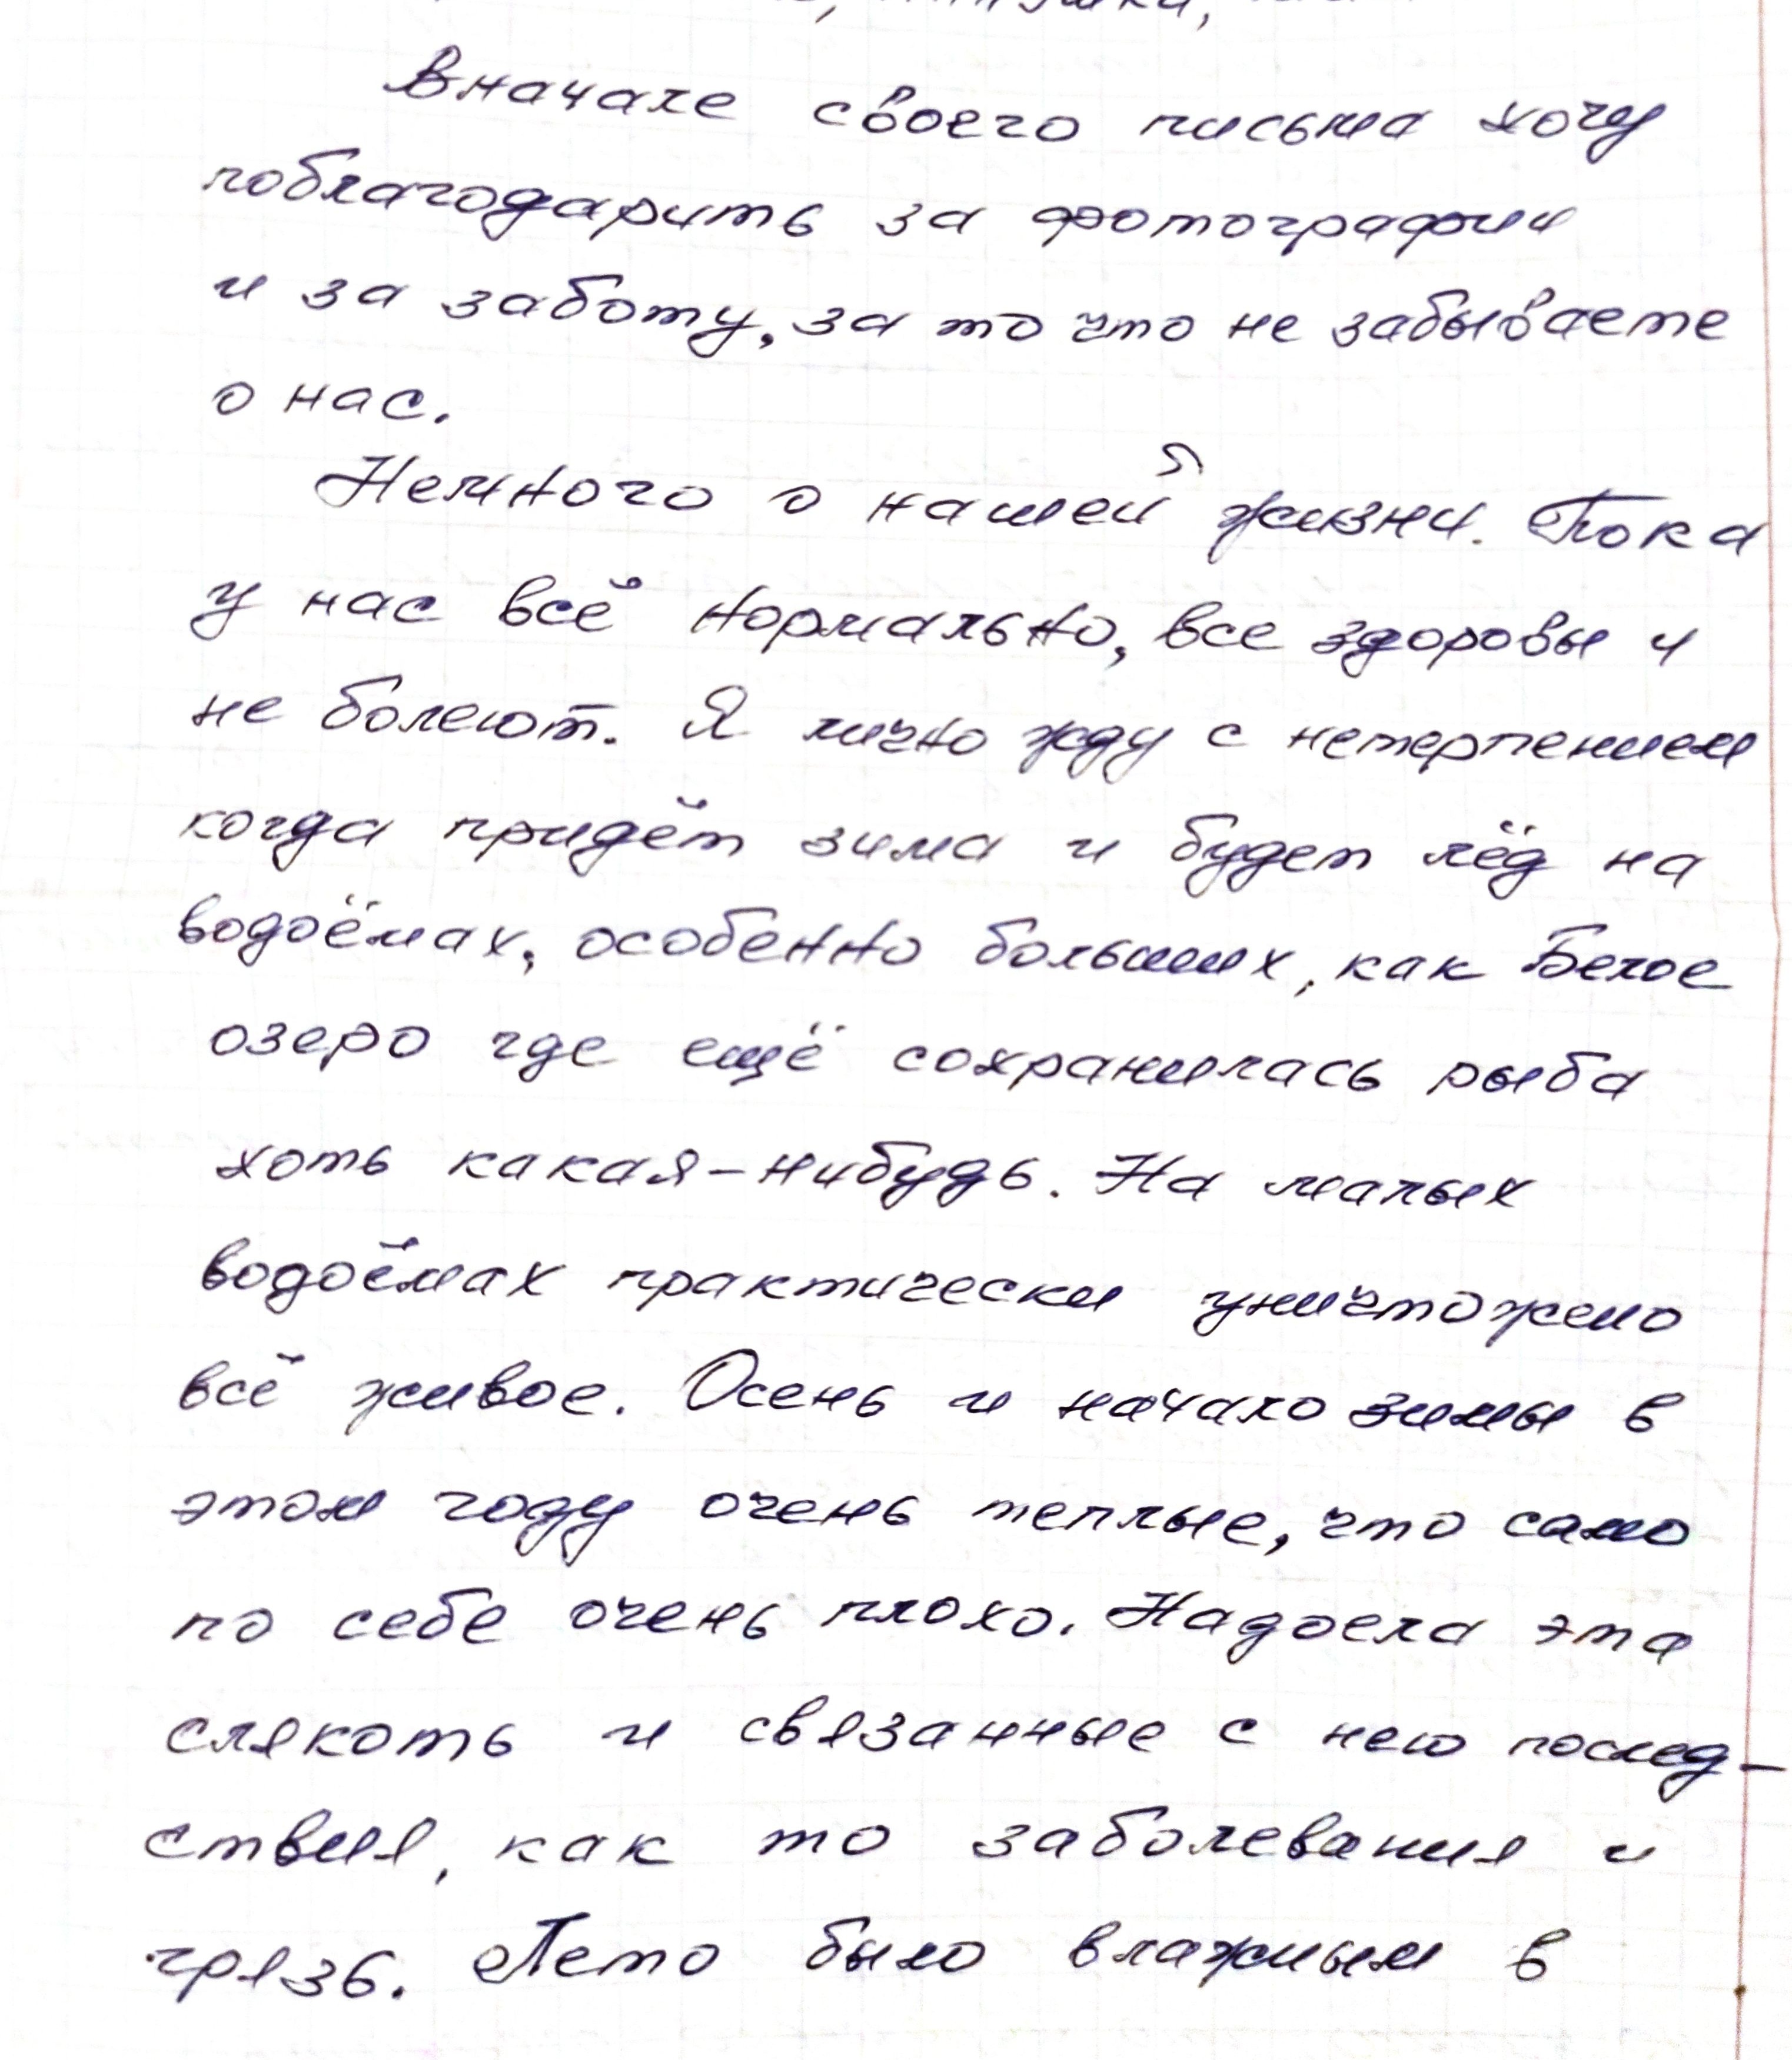 Вначале своего письма хочу
поблагодарить за фотографии
и за заботу, за то что не забываете
о нас.
Немного о нашей жизни. Пока
у нас всё нормально, все здоровы и
не болеют. Я лично жду с нетерпением
когда придёт зима и будет лёд на
водоёмах, особенно больших, как Белое
озеро где ещё сохранилась рыба
хоть какая-нибудь. На малых
водоёмах практически уничтожено
всё живое. Осень и начало зимы в
этом году очень теплые, что само
по себе очень плохо. Надоела эта
слякоть и связанные с нею послед-
ствия, как то заболевания и
грязь. Лето было влажным в